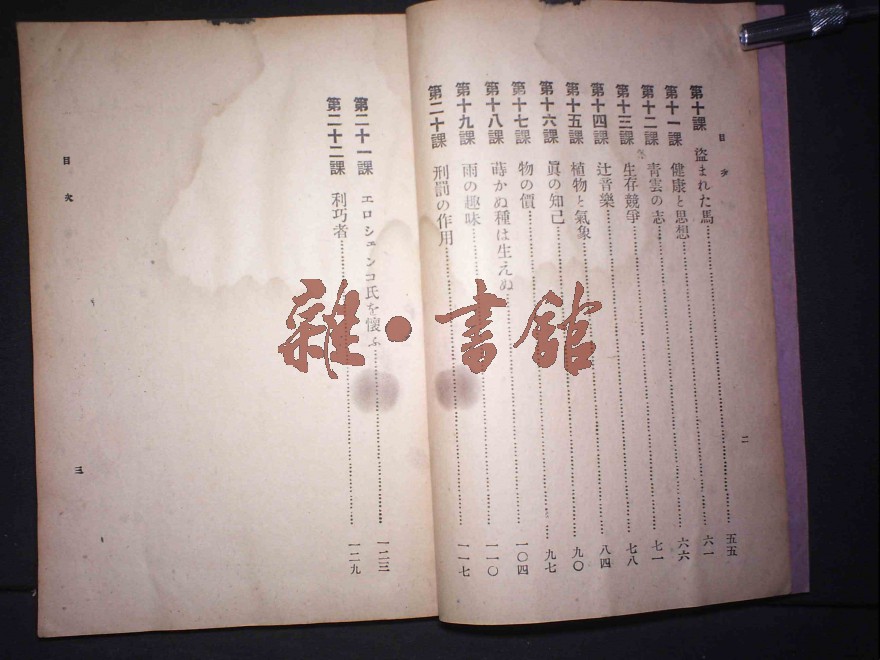 目次
二
第十課 盜まれた馬…………五五
第十一課 健康と思想…………六一
第十二課 靑雲の志…………六六
第十三課 生存競爭…………七一
第十四課 辻音樂…………七八
第十五課 植物と氣象…………八四
第十六課 眞の知己…………九〇
第十七課 物の價…………九七
第十八課 蒔かぬ種は生えぬ…………一〇四
第十九課 雨の趣味…………一一〇
第二十課 刑罰の作用…………一一七
第二十一課 エロシェンコ氏を懷ふ…………一二三
第二十二課 利巧者…………一二九
目次
三
雜・書館